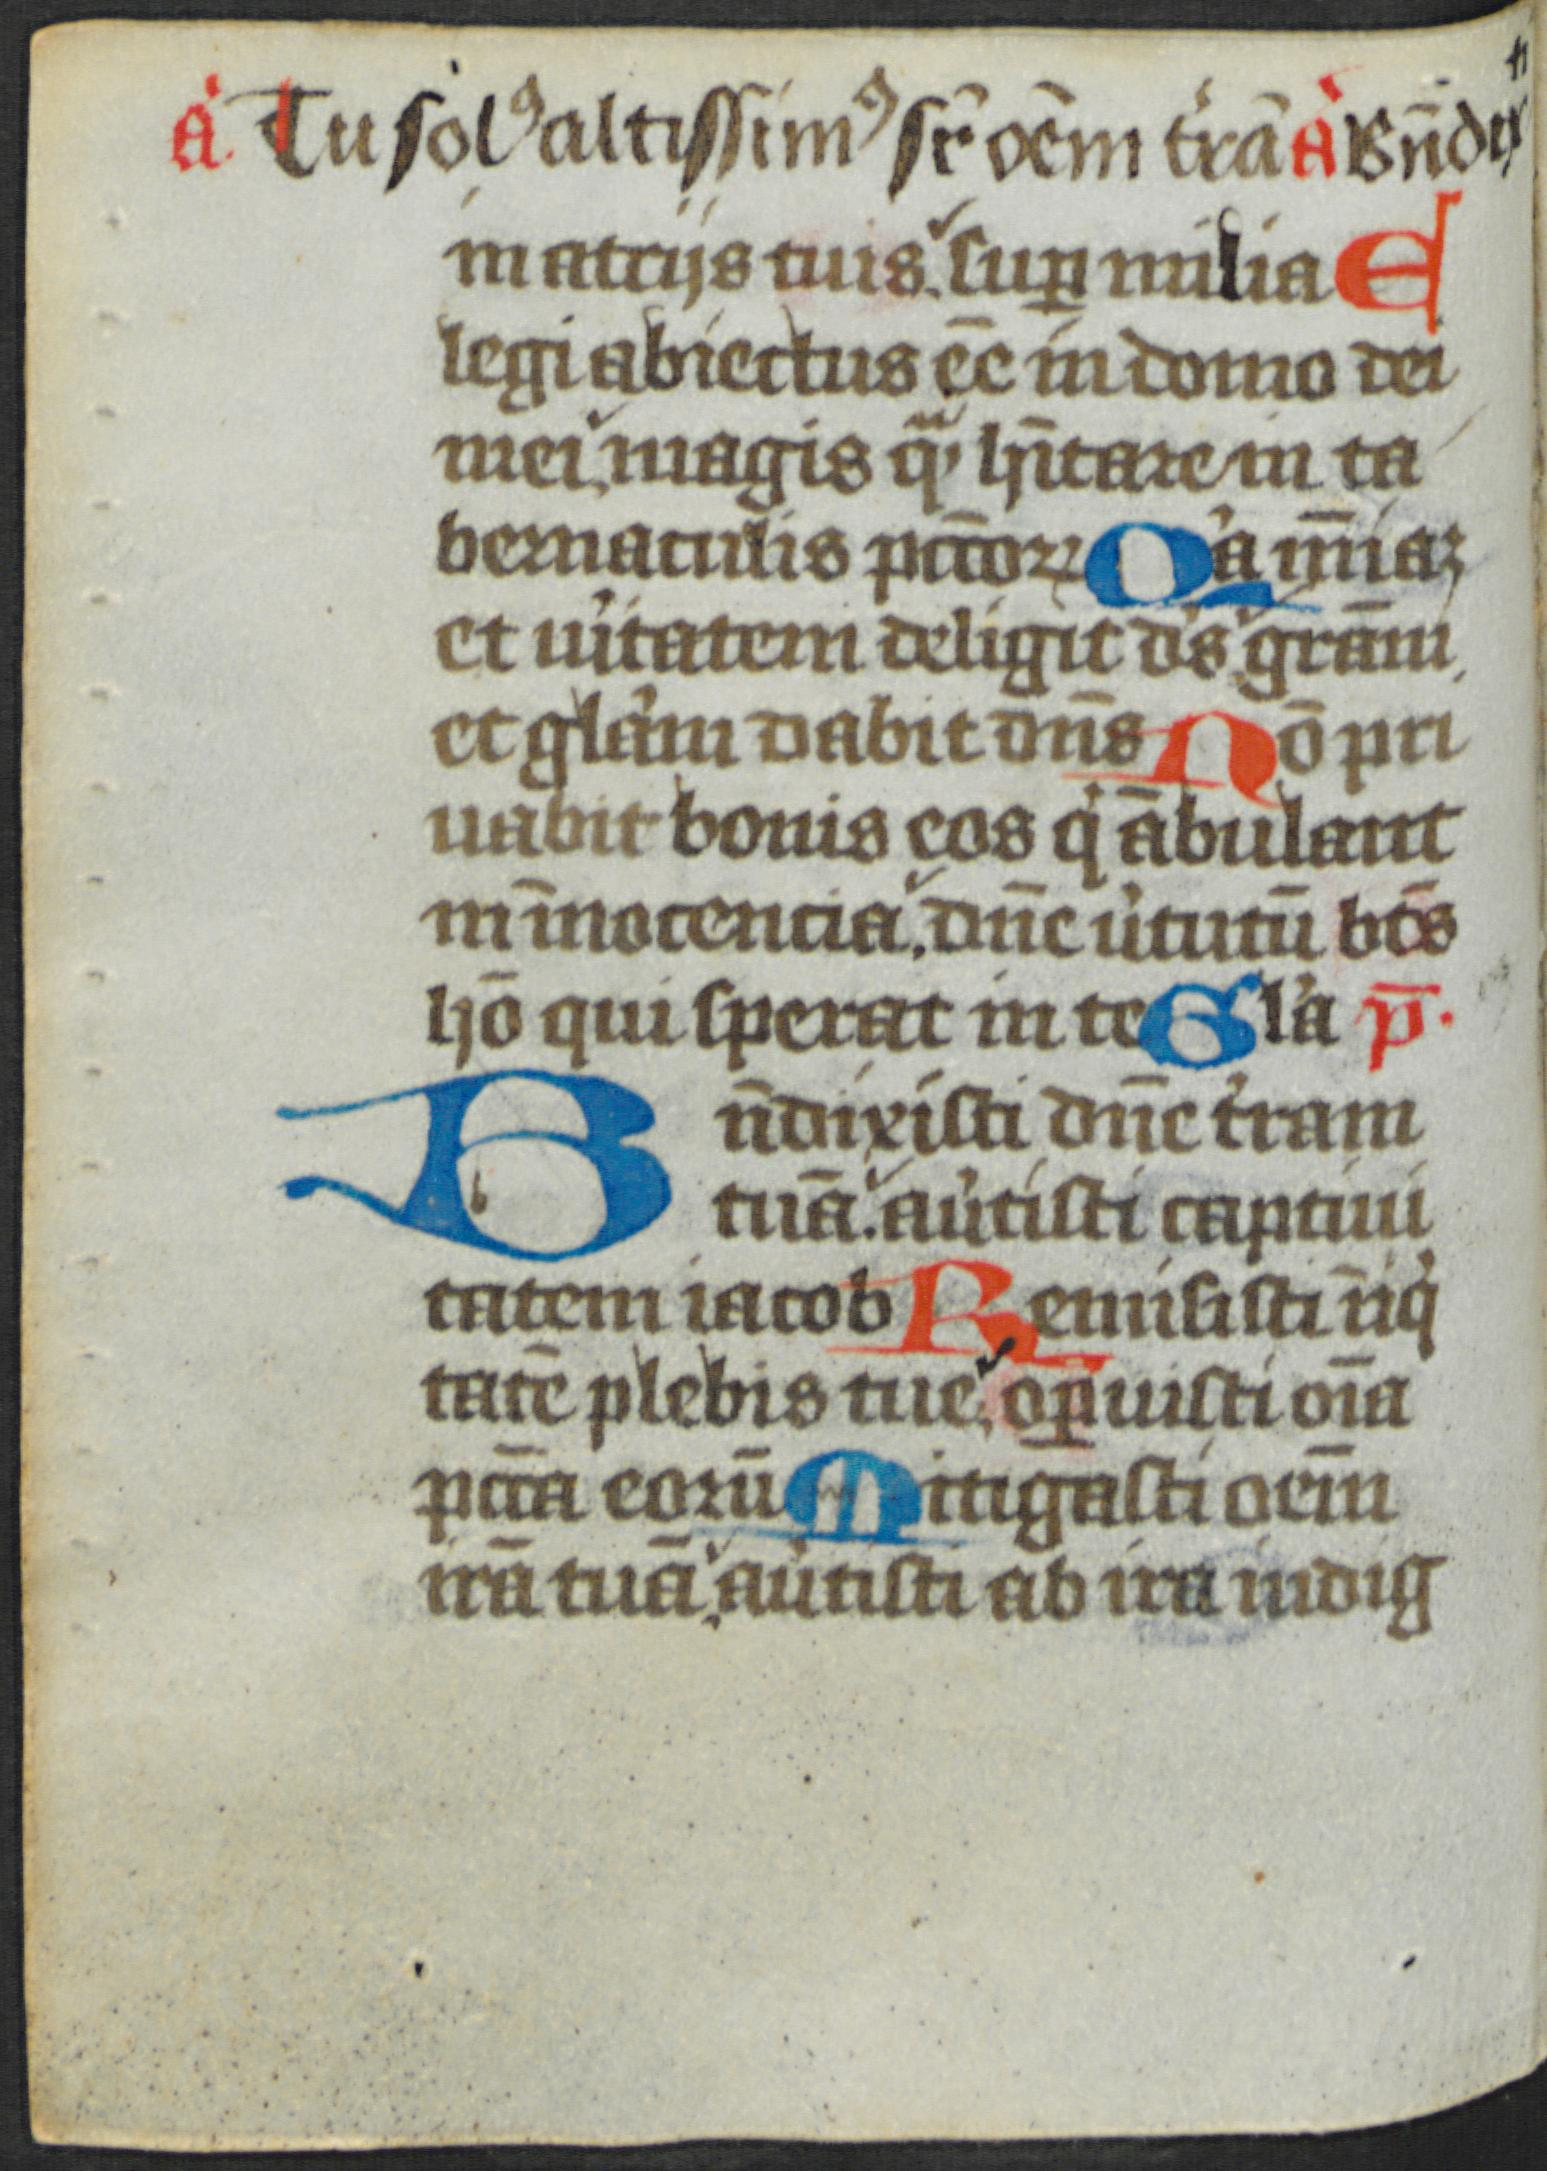 a̾ Tu solꝰ altissimꝰ sr̄ oēm t̾rā a̾ Bn̄dix
in atrijs tuis. suꝑ milia E
legi abiectus eē in domo dei
mei, magis qͣ̄ hītare in ta
bernaculis pctōꝝ Qͥa mīaꝫ
et u̾itatem deligit ds̄ grām
et gla̾m dabit dn̄s Nō pri
uabit bonis eos qͥ ābulant
in īnocencia, dn̄e u̾tutū bt̄s
hō qui sperat in te Gla̾ p̄.
Bn̄dixisti dn̄e t̾ram
tuā. au̾tisti captiui
tatem iacob Remisisti īiqͥ
tatē plebis tue, oꝑuisti oīa
pctā eorū Mitigasti oēm
irā tuā, au̾tisti ab ira indig